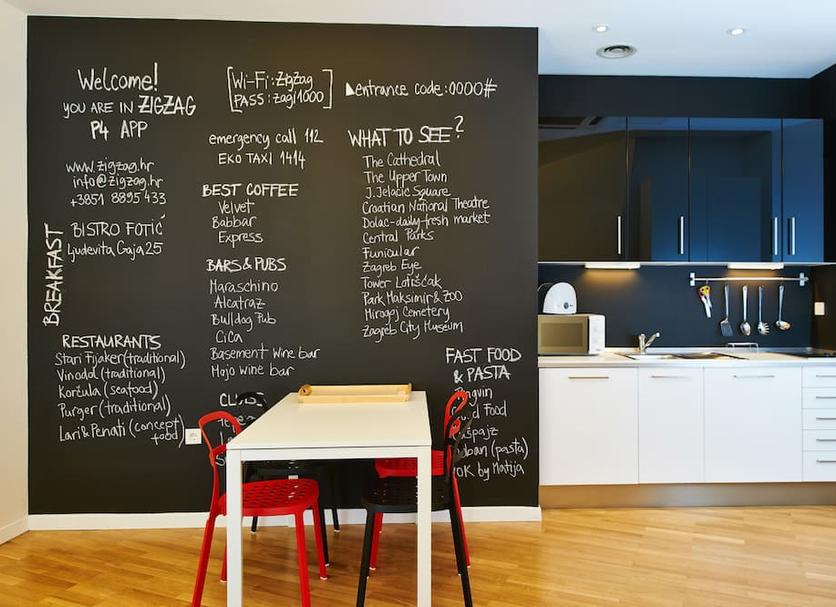 Welcome!
YOU ARE IN ZIGZAG
P4 APP
www.zigzag.hr
info@zigzag.hr
+3851 8895 433
BREAKFAST
BISTRO FOTIĆ
Ljudevita Gaja 25
RESTAURANTS
Stari Fijaker (traditional)
Vinodol (traditional)
Korčula (seafood)
Purger (traditional)
Lari & Penati (concept
food)
Wi-Fi: ZigZag
PASS: zagi1000
emergency call 112
EKO TAXI 1414
BEST COFFEE
Velvet
Babbar
Express
BARS & PUBS
Maraschino
Alcatraz
Bulldog Pub
Cica
Basement Wine bar
Mojo wine bar
entrance code: 0000#
WHAT TO SEE?
The Cathedral
The Upper Town
J. Jelačić Square
Croatian National Theatre
Dolac-daily-fresh market
Central Parks
Funicular
Zagreb Eye
Tower Lotršćak
Park Maksimir & ZOO
Mirogoj Cemetery
Zagreb City Museum
FAST FOOD
& PASTA
Food
(pasta)
by Matija